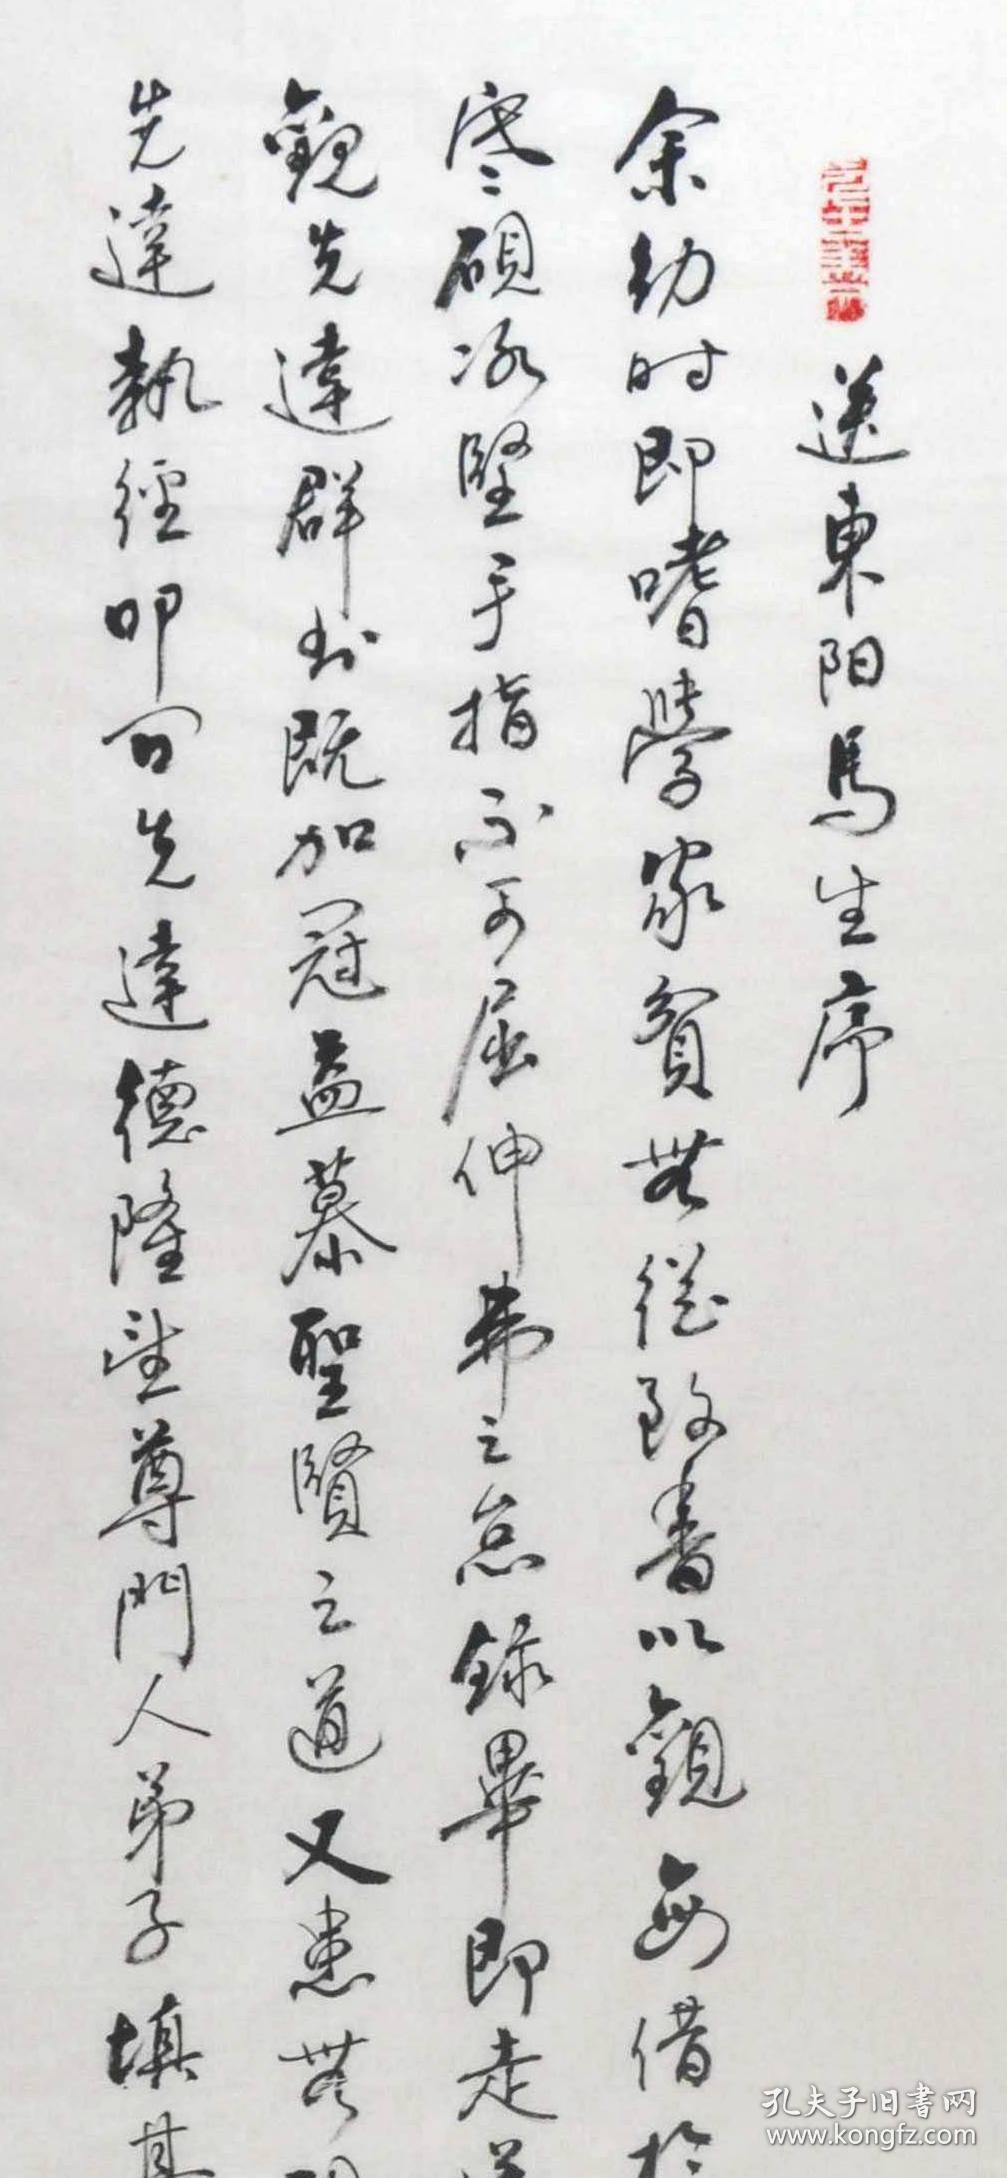 送東阳馬生序
余幼时即嗜學家貧無從致書以觀每借於
寒硯冰堅手指不可屈伸弗之怠錄畢即走送
觀先達群书既加冠益慕聖賢之道又患無碩
先達執經叩问先達德隆望尊門人弟子填其
孔夫子旧書网
www.kongfz.com